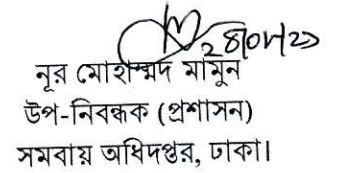 ২৪/০৮/২০
নূর মোহাম্মদ মামুন
উপ-নিবন্ধক (প্রশাসন)
সমবায় অধিদপ্তর, ঢাকা।